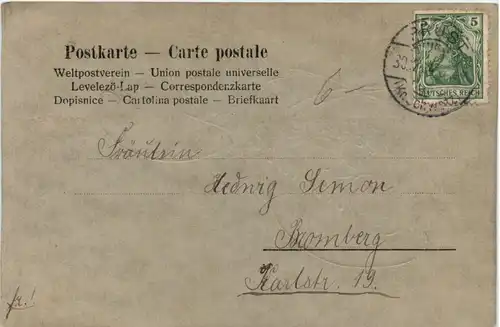 Postkarte — Carte postale
Weltpostverein — Union postale universelle
Levelező-Lap — Correspondenzkarte
Dopisnice — Cartolina postale — Briefkaart
6-
5 5
DEUTSCHES REICH
PRUST
Fräulein
Hedwig Simon
Bromberg
Karlstr. 19.
fr.!